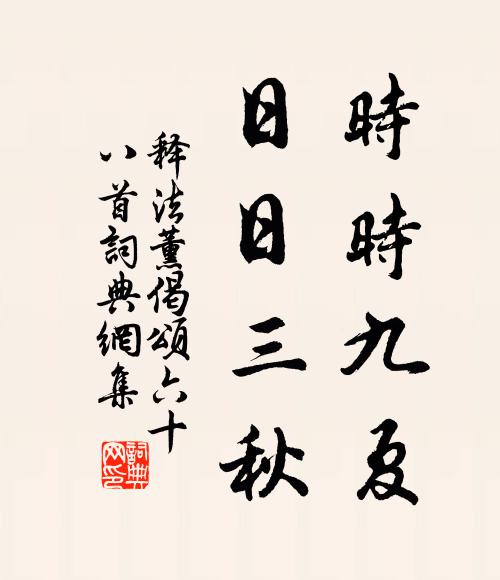 時時九夏
日日三秋
释法薰偈頌六十
八首詞典網集
詞典
网印